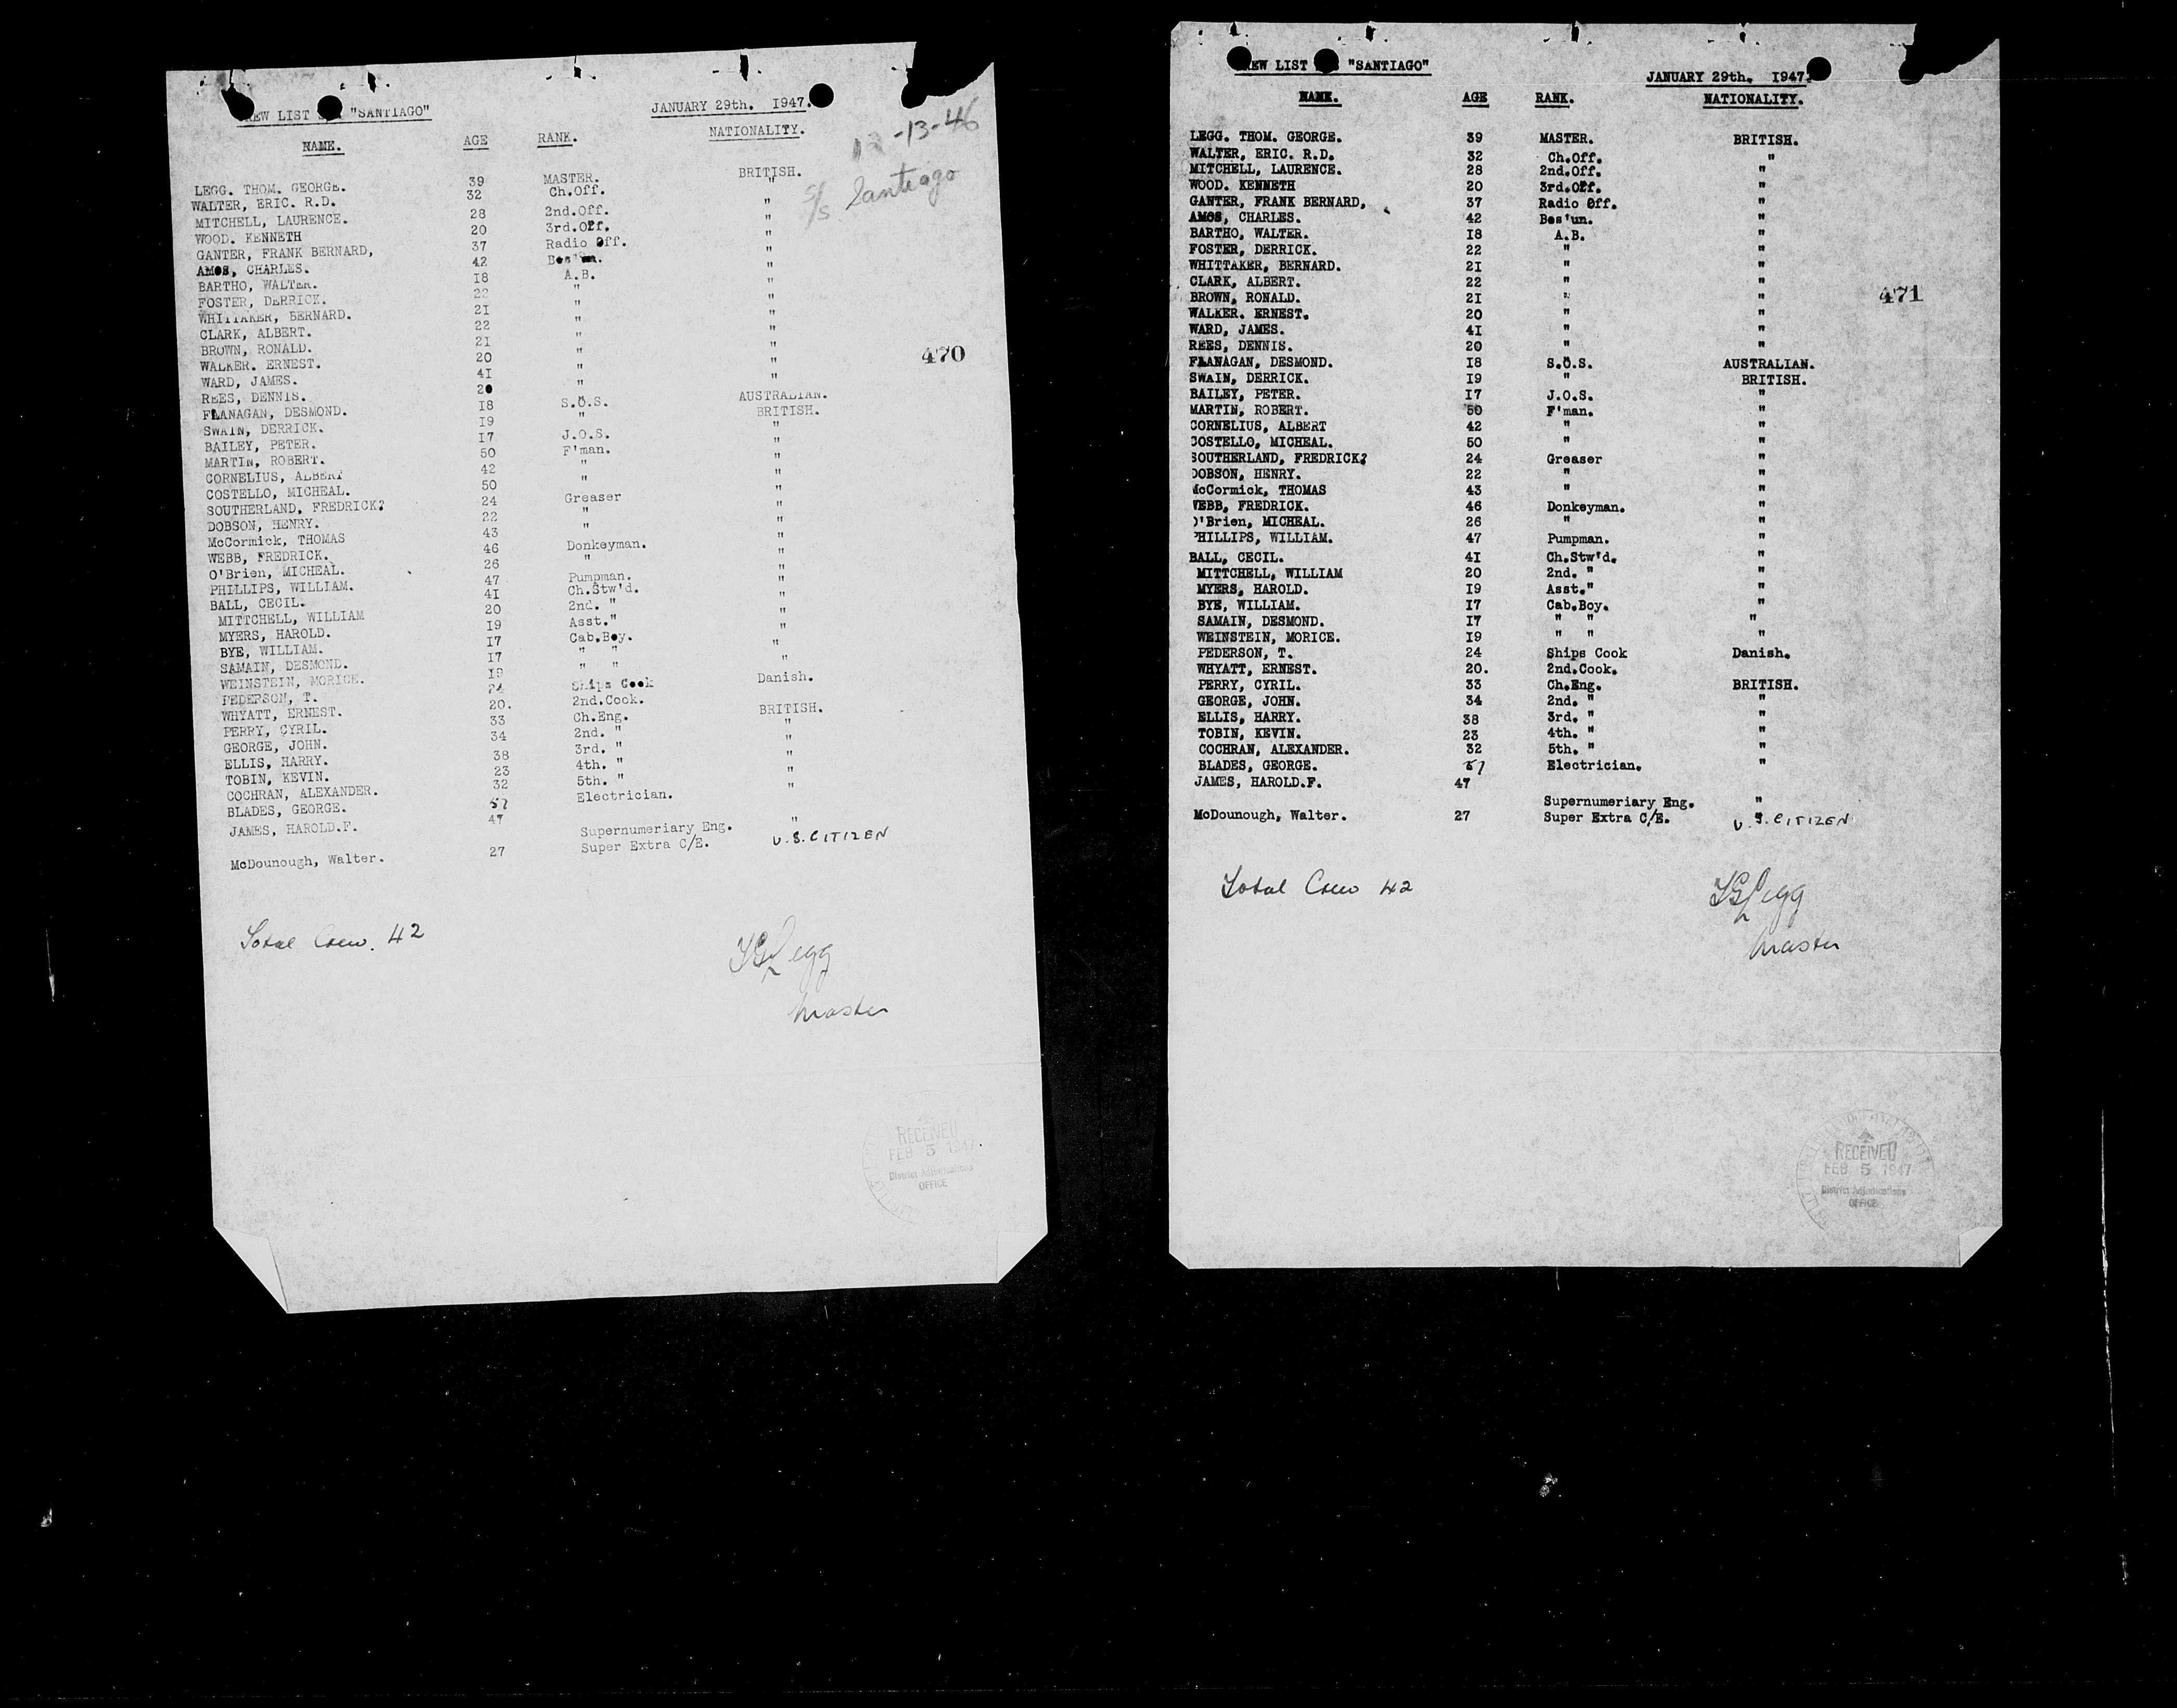 EW LIST "SANTIAGO" JANUARY 29th. 1947.
NAME. AGE RANK. NATIONALITY.
-13-46
S/S Santiago
LEGG. THOM. GEORGE. 39 MASTER. BRITISH.
WALTER, ERIC. R.D. 32 Ch.Off. "
MITCHELL, LAURENCE. 28 2nd.Off. "
WOOD. KENNETH 20 3rd.Off. "
GANTER, FRANK BERNARD, 37 Radio Off. "
AMOS, CHARLES. 42 Bos'un. "
BARTHO, WALTER. 18 A.B. "
FOSTER, DERRICK. 22 " "
WHITTAKER, BERNARD. 21 " "
CLARK, ALBERT. 22 " "
BROWN, RONALD. 21 " "
WALKER. ERNEST. 20 " "
WARD, JAMES. 41 " "
REES, DENNIS. 20 " "
FLANAGAN, DESMOND. 18 S.O.S. AUSTRALIAN.
SWAIN, DERRICK. 19 " BRITISH.
BAILEY, PETER. 17 J.O.S. "
MARTIN, ROBERT. 50 F'man. "
CORNELIUS, ALBERT 42 " "
COSTELLO, MICHEAL. 50 " "
SOUTHERLAND, FREDRICK? 24 Greaser "
DOBSON, HENRY. 22 " "
McCormick, THOMAS 43 " "
WEBB, FREDRICK. 46 Donkeyman. "
O'Brien, MICHEAL. 26 " "
PHILLIPS, WILLIAM. 47 Pumpman. "
BALL, CECIL. 41 Ch.Stw'd. "
MITTCHELL, WILLIAM 20 2nd. " "
MYERS, HAROLD. 19 Asst." "
BYE, WILLIAM. 17 Cab.Boy. "
SAMAIN, DESMOND. 17 " " "
WEINSTEIN, MORICE. 19 " " "
PEDERSON, T. 24 Ships Cook Danish.
WHYATT, ERNEST. 20. 2nd.Cook.
PERRY, CYRIL. 33 Ch.Eng. BRITISH.
GEORGE, JOHN. 34 2nd. " "
ELLIS, HARRY. 38 3rd. " "
TOBIN, KEVIN. 23 4th. " "
COCHRAN, ALEXANDER. 32 5th. " "
BLADES, GEORGE. Electrician. "
JAMES, HAROLD.F. 47 Supernumeriary Eng. "
McDounough, Walter. 27 Super Extra C/E. U.S. CITIZEN
470
Total Crew. 42
TG Legg
Master
RECEIVED
FEB 5 1947
District Adjudications
OFFICE
EW LIST "SANTIAGO" JANUARY 29th. 1947.
NAME. AGE RANK. NATIONALITY.
LEGG. THOM. GEORGE. 39 MASTER. BRITISH.
WALTER, ERIC. R.D. 32 Ch.Off. "
MITCHELL, LAURENCE. 28 2nd.Off. "
WOOD. KENNETH 20 3rd.Off. "
GANTER, FRANK BERNARD, 37 Radio Off. "
AMOS, CHARLES. 42 Bos'un. "
BARTHO, WALTER. 18 A.B. "
FOSTER, DERRICK. 22 " "
WHITTAKER, BERNARD. 21 " "
CLARK, ALBERT. 22 " "
BROWN, RONALD. 21 " "
WALKER. ERNEST. 20 " "
WARD, JAMES. 41 " "
REES, DENNIS. 20 " "
FLANAGAN, DESMOND. 18 S.O.S. AUSTRALIAN.
SWAIN, DERRICK. 19 " BRITISH.
BAILEY, PETER. 17 J.O.S. "
MARTIN, ROBERT. 50 F'man. "
CORNELIUS, ALBERT 42 " "
COSTELLO, MICHEAL. 50 " "
SOUTHERLAND, FREDRICK? 24 Greaser "
DOBSON, HENRY. 22 " "
McCormick, THOMAS 43 " "
WEBB, FREDRICK. 46 Donkeyman. "
O'Brien, MICHEAL. 26 " "
PHILLIPS, WILLIAM. 47 Pumpman. "
BALL, CECIL. 41 Ch.Stw'd. "
MITTCHELL, WILLIAM 20 2nd. " "
MYERS, HAROLD. 19 Asst." "
BYE, WILLIAM. 17 Cab.Boy. "
SAMAIN, DESMOND. 17 " " "
WEINSTEIN, MORICE. 19 " " "
PEDERSON, T. 24 Ships Cook Danish.
WHYATT, ERNEST. 20. 2nd.Cook.
PERRY, CYRIL. 33 Ch.Eng. BRITISH.
GEORGE, JOHN. 34 2nd. " "
ELLIS, HARRY. 38 3rd. " "
TOBIN, KEVIN. 23 4th. " "
COCHRAN, ALEXANDER. 32 5th. " "
BLADES, GEORGE. Electrician. "
JAMES, HAROLD.F. 47 Supernumeriary Eng. "
McDounough, Walter. 27 Super Extra C/E. U.S. CITIZEN
471
Total Crew 42
TG Legg
Master
RECEIVED
FEB 5 1947
District Adjudications
OFFICE